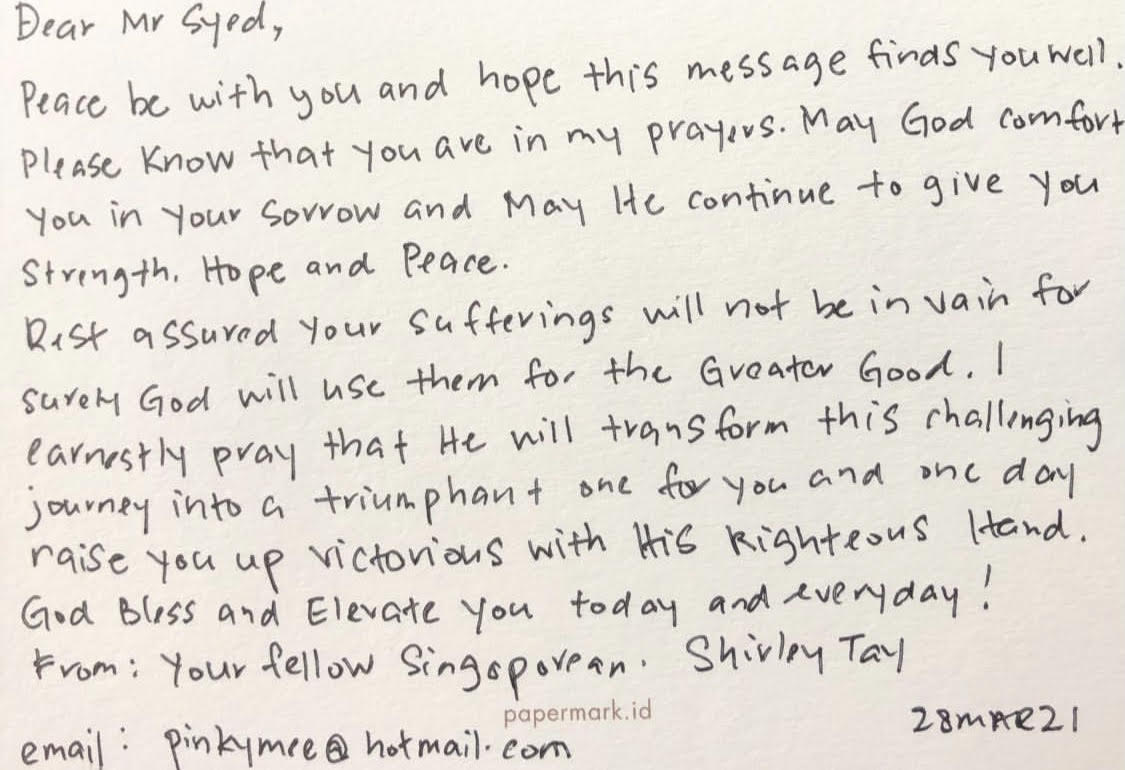 Dear Mr Syed,
Peace be with you and hope this message finds you well.
Please Know that you are in my prayers. May God comfort
you in your Sorrow and May He continue to give you
Strength. Hope and Peace.
Rest assured your sufferings will not be in vain for
surely God will use them for the Greater Good. I
earnestly pray that He will transform this challenging
journey into a triumphant one for you and one day
raise you up victorious with His Righteous Hand.
God Bless and Elevate you today and everyday!
From: Your fellow Singaporean. Shirley Tay
papermark.id
28MAR21
email: pinkymee@hotmail.com